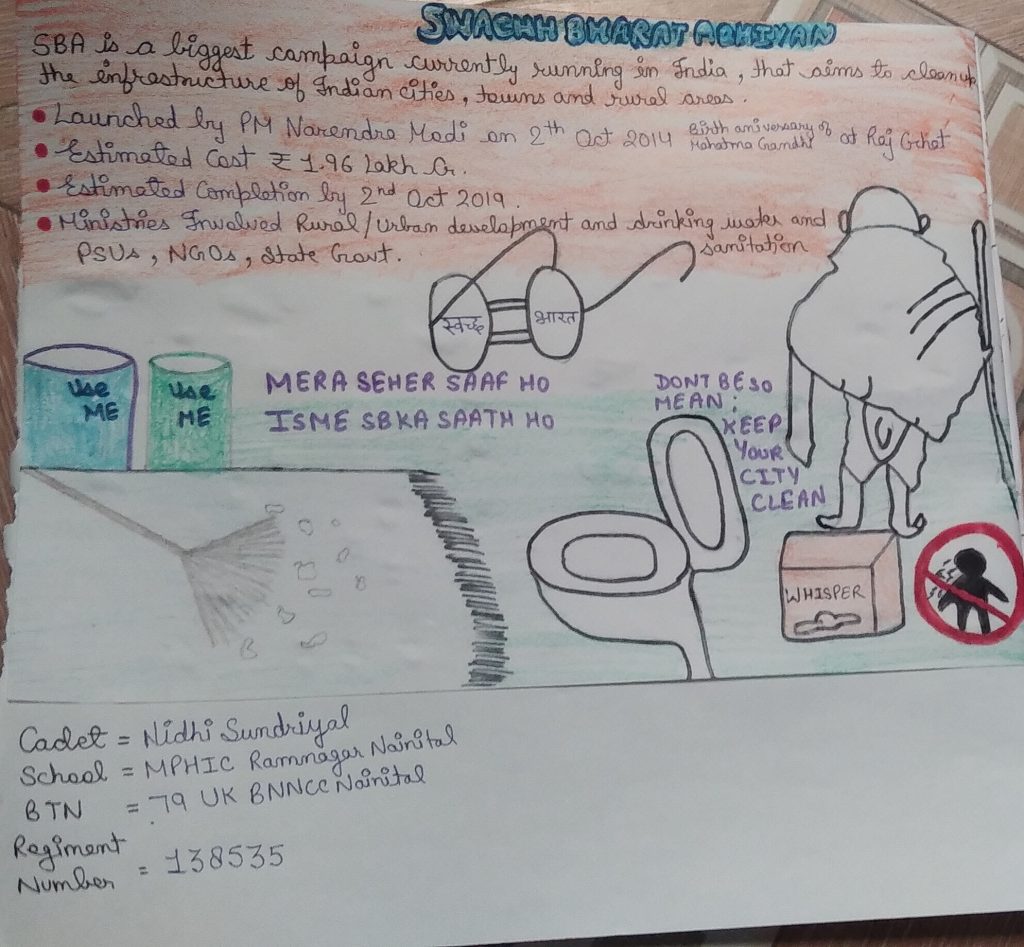 SWACHH BHARAT ABHIYAN
SBA is a biggest campaign currently running in India, that aims to cleanup
the infrastructure of Indian cities, towns and rural areas.
• Launched by PM Narendra Modi on 2th Oct 2014 Birth aniversary of Mahatma Gandhi at Raj Ghat
• Estimated Cost ₹ 1.96 Lakh Cr.
• Estimated Completion by 2nd Oct 2019.
• Ministries Involved Rural/Urban development and drinking water and
sanitation
PSUs, NGOs, State Govt.
स्वच्छ भारत
Use
ME
Use
ME
MERA SEHER SAAF HO
ISME SBKA SAATH HO
DONT BE SO
MEAN:
KEEP
YOUR
CITY
CLEAN
WHISPER
Cadet = Nidhi Sundriyal
School = MPHIC Ramnagar Nainital
BTN = 79 UK BNNCC Nainital
Regiment
Number = 138535